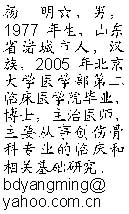 杨明六，男，
1977年生，山东
省诸城市人，汉
族，2005年北京
大学医学部第二
临床医学院毕业，
博士，主治医师，
主要从事创伤骨
科专业的临床和
相关基础研究。
bdyangming@
yahoo.com.cn